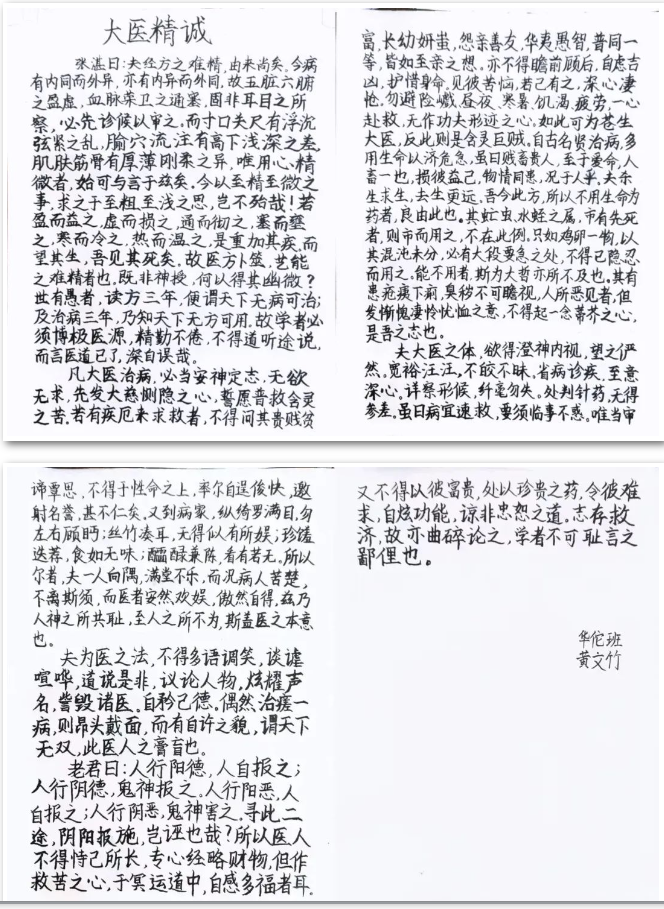 大医精诚
张湛曰:夫经方之难精,由来尚矣。今病
有内同而外异,亦有内异而外同,故五脏六腑
之盈虚,血脉荣卫之通塞,固非耳目之所
察,必先诊候以审之。而寸口关尺有浮沉
弦紧之乱,腧穴流注有高下浅深之差,
肌肤筋骨有厚薄刚柔之异,唯用心精
微者,始可与言于兹矣。今以至精至微之
事,求之于至粗至浅之思,岂不殆哉!若
盈而益之,虚而损之,通而彻之,塞而壅
之,寒而冷之,热而温之,是重加其疾,而
望其生,吾见其死矣。故医方卜筮,艺能
之难精者也,既非神授,何以得其幽微?
世有愚者,读方三年,便谓天下无病可治;
及治病三年,乃知天下无方可用。故学者必
须博极医源,精勤不倦,不得道听途说,
而言医道已了,深自误哉。
凡大医治病,必当安神定志,无欲
无求,先发大慈恻隐之心,誓愿普救含灵
之苦。若有疾厄来求救者,不得问其贵贱贫
富,长幼妍蚩,怨亲善友,华夷愚智,普同一
等,皆如至亲之想。亦不得瞻前顾后,自虑吉
凶,护惜身命。见彼苦恼,若己有之,深心凄
怆,勿避险巇、昼夜、寒暑、饥渴、疲劳,一心
赴救,无作功夫形迹之心。如此可为苍生
大医,反此则是含灵巨贼。自古名贤治病,多
用生命以济危急,虽曰贱畜贵人,至于爱命,人
畜一也,损彼益己,物情同患,况于人乎。夫杀
生求生,去生更远。吾今此方,所以不用生命为
药者,良由此也。其虻虫、水蛭之属,市有先死
者,则市而用之,不在此例。只如鸡卵一物,以
其混沌未分,必有大段要急之处,不得已隐忍
而用之。能不用者,斯为大哲亦所不及也。其有
患疮痍下痢,臭秽不可瞻视,人所恶见者,但
发惭愧凄怜忧恤之意,不得起一念蒂芥之心,
是吾之志也。
夫大医之体,欲得澄神内视,望之俨
然,宽裕汪汪,不皎不昧。省病诊疾,至意
深心。详察形候,纤毫勿失。处判针药,无得
参差。虽曰病宜速救,要须临事不惑。唯当审
谛覃思,不得于性命之上,率尔自逞俊快,邀
射名誉,甚不仁矣。又到病家,纵绮罗满目,勿
左右顾眄;丝竹凑耳,无得似有所娱;珍馐
迭荐,食如无味;醽醁兼陈,看有若无。所以
尔者,夫一人向隅,满堂不乐,而况病人苦楚,
不离斯须,而医者安然欢娱,傲然自得,兹乃
人神之所共耻,至人之所不为,斯盖医之本意
也。
夫为医之法,不得多语调笑,谈谑
喧哗,道说是非,议论人物,炫耀声
名,訾毁诸医。自矜己德。偶然治瘥一
病,则昂头戴面,而有自许之貌,谓天下
无双,此医人之膏肓也。
老君曰:人行阳德,人自报之;
人行阴德,鬼神报之。人行阳恶,人
自报之;人行阴恶,鬼神害之。寻此二
途,阴阳报施,岂诬也哉?所以医人
不得恃己所长,专心经略财物,但作
救苦之心,于冥运道中,自感多福者耳。
又不得以彼富贵,处以珍贵之药,令彼难
求,自炫功能,谅非忠恕之道。志存救
济,故亦曲碎论之,学者不可耻言之
鄙俚也。
华佗班
黄文竹